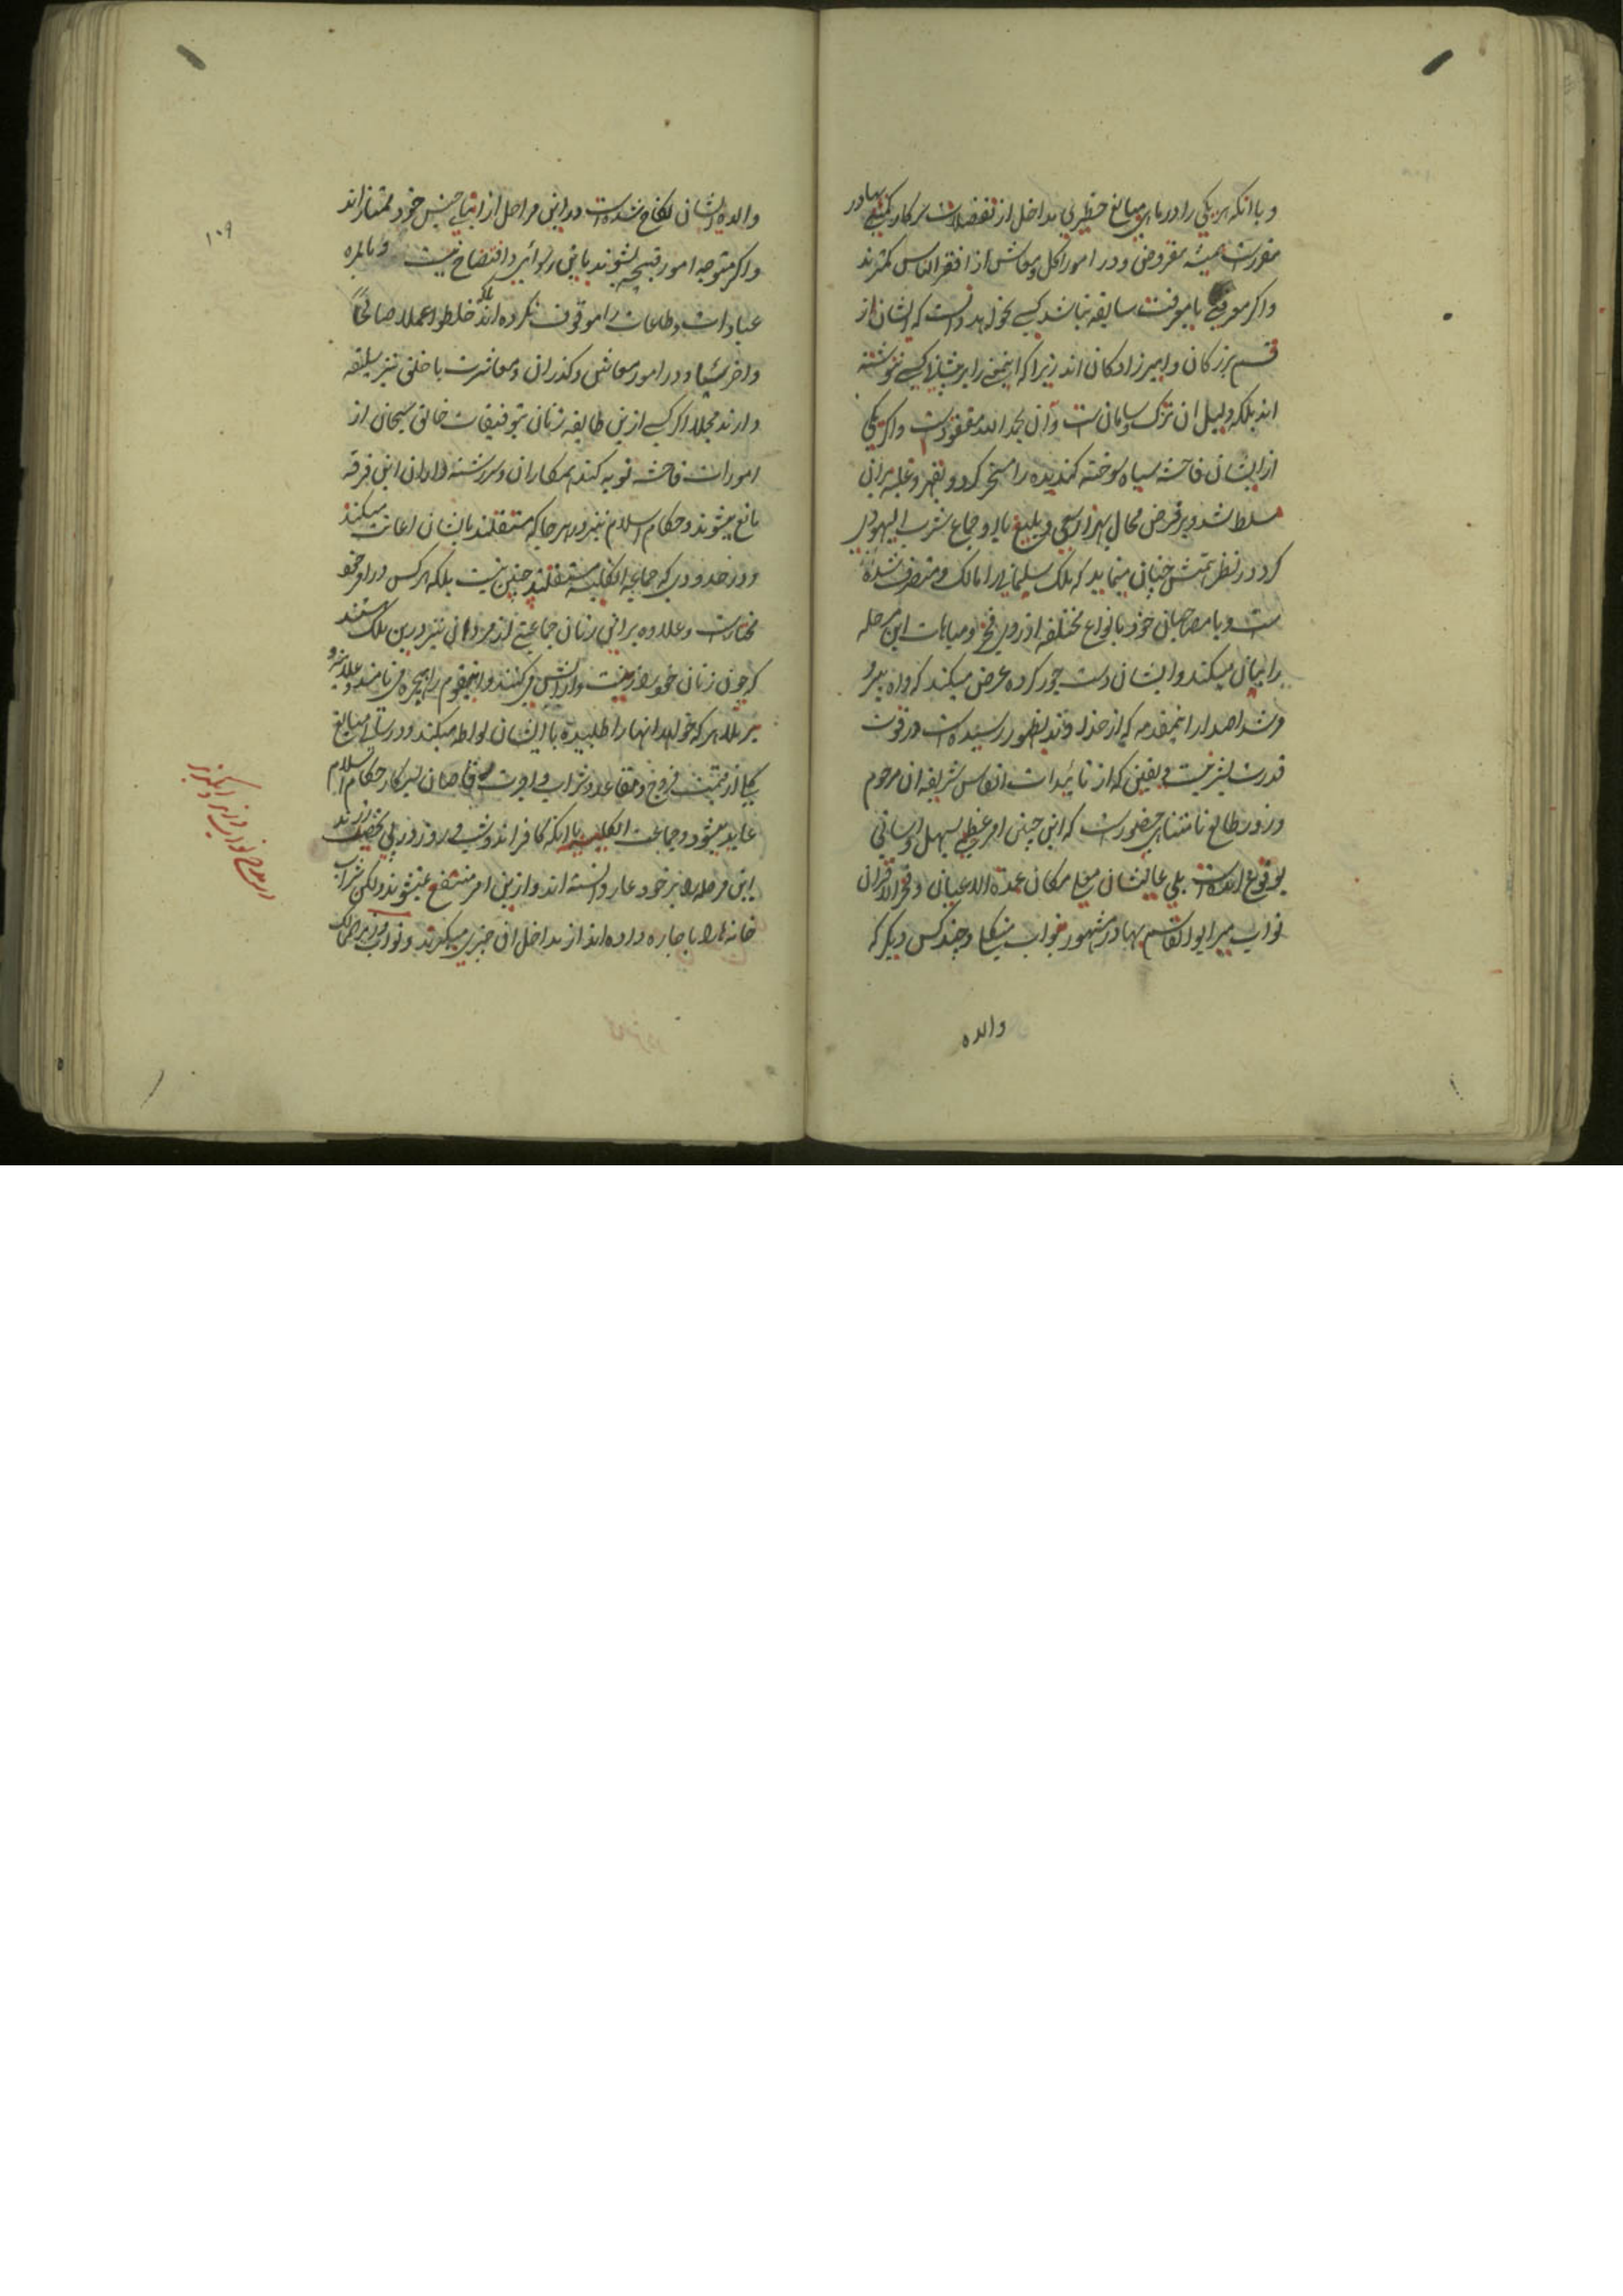 و با انکه هر یکی را در ماهی مبالغ خطیری مداخل از تفضلات سرکار کمپنی بهادر
مقررست همیشه مقروض و در امور اکل و معاش از افقر الناس کمترند
واکر معرفی یا معرفت سابقه نباشد کسی نخواهد دانست که ایشان از
قسم بزرکان و امیرزادکان اند زیرا که اینمعنی را بر پیشانی کسی ننوشته
اند بلکه دلیل ان تزک و سامان ست و ان بحمد الله مفقودست واکر یکی
از ایشان فاحشه سیاه سوخته کندیده را مسخر کرد و بقهر و غلبه بران
مسلط شد و بر فرض محال بهزار سعی و بلیغ یاد و جماع
کرد در نظر همتش چنان مینماید که ملک سلیمانی را مالک و متصرف شده
ست و با مصاحبان خود بانواع مختلفه از روی فخر و مباهات این مرحله
را بیان میکند و ایشان دست جور کرده عرض میکند که واه پیر و
مرشد امداد اینمقدمه که از خداوند بظهور رسیده است در قوت
قدرت بشر نیست و یقین که از تائیدات انفاس شریفه ان مرحوم
و زور طالع نامتناهی حضورست که این چنین امر عظیمی بسهل و اسانی
بوقوع امده است بلی عالیشان معلی مکان عمدة الاعیان و فخر الاقران
نواب میر ابوالقاسم بهادر مشهور بنواب منکلی و چند کس دیکر که
والده
۱۰۹
والدۀ ایشان نکاح شده است در این مراحل از ابنای جنس خود ممتازاند
واکر متوجه امور قبیحه بشوند باین رسوائی و افتضاح نیست و بالمره
عبادات و طاعات را موقوف نکرده اند بلکه خلطوا عملا صالحاً
واخر سیئا و در امور معاش و کذران و معاشرت با خلق نیز سلیقه
دارند مجملا اکر کسی ازین طایفه زنان بتوفیقات خالق سبحانی از
امورات فاحشه توبه کند همکاران و سررشته داران این فرقه
مانع میشوند و حکام اسلام نیز در هر جا که مستقلند بایشان اعانت میکنند
و در حدودی که جماعه انکلیسه مستقلند چنین نیست بلکه هر کس در امر خود
مختارست و علاوه بر این زنان جماعتی از مردان نیز درین ملک هستند
که چون زنان خود را زینت و ارایش میکنند و اینقوم را هیجره می نامند و علانیه و
بر ملا هر که خواهد انها را طلبیده با ایشان لواطه میکند و در سالی مبالغ
کلی از قیمت فروج و مقاعد و شراب و اجرت رقاصان بسرکار حکام اسلام
عاید میشود و جماعت انکلیسیه با انکه کافراند و شب و روز در پی تحصیل زرند
این مرحله را بر خود عار دانسته اند و ازین امر منتفع نمیشوند ولکن شراب
خانه ها را باجاره داده اند از مداخل ان چیزی میکیرند و نواب وزیر الممالک